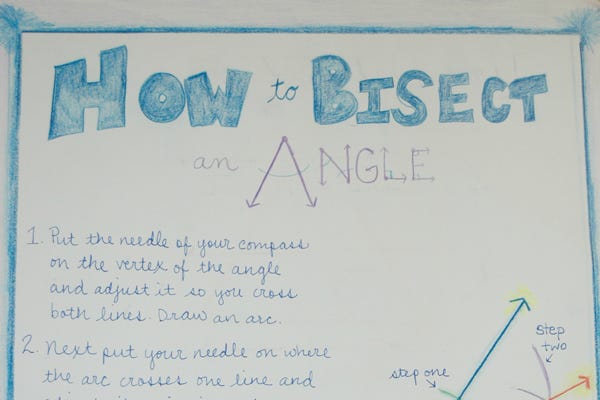 HOW to BISECT
an ANGLE
1. Put the needle of your compass
on the vertex of the angle
and adjust it so you cross
both lines. Draw an arc.
2. Next put your needle on where
the arc crosses one line and
step one
step two